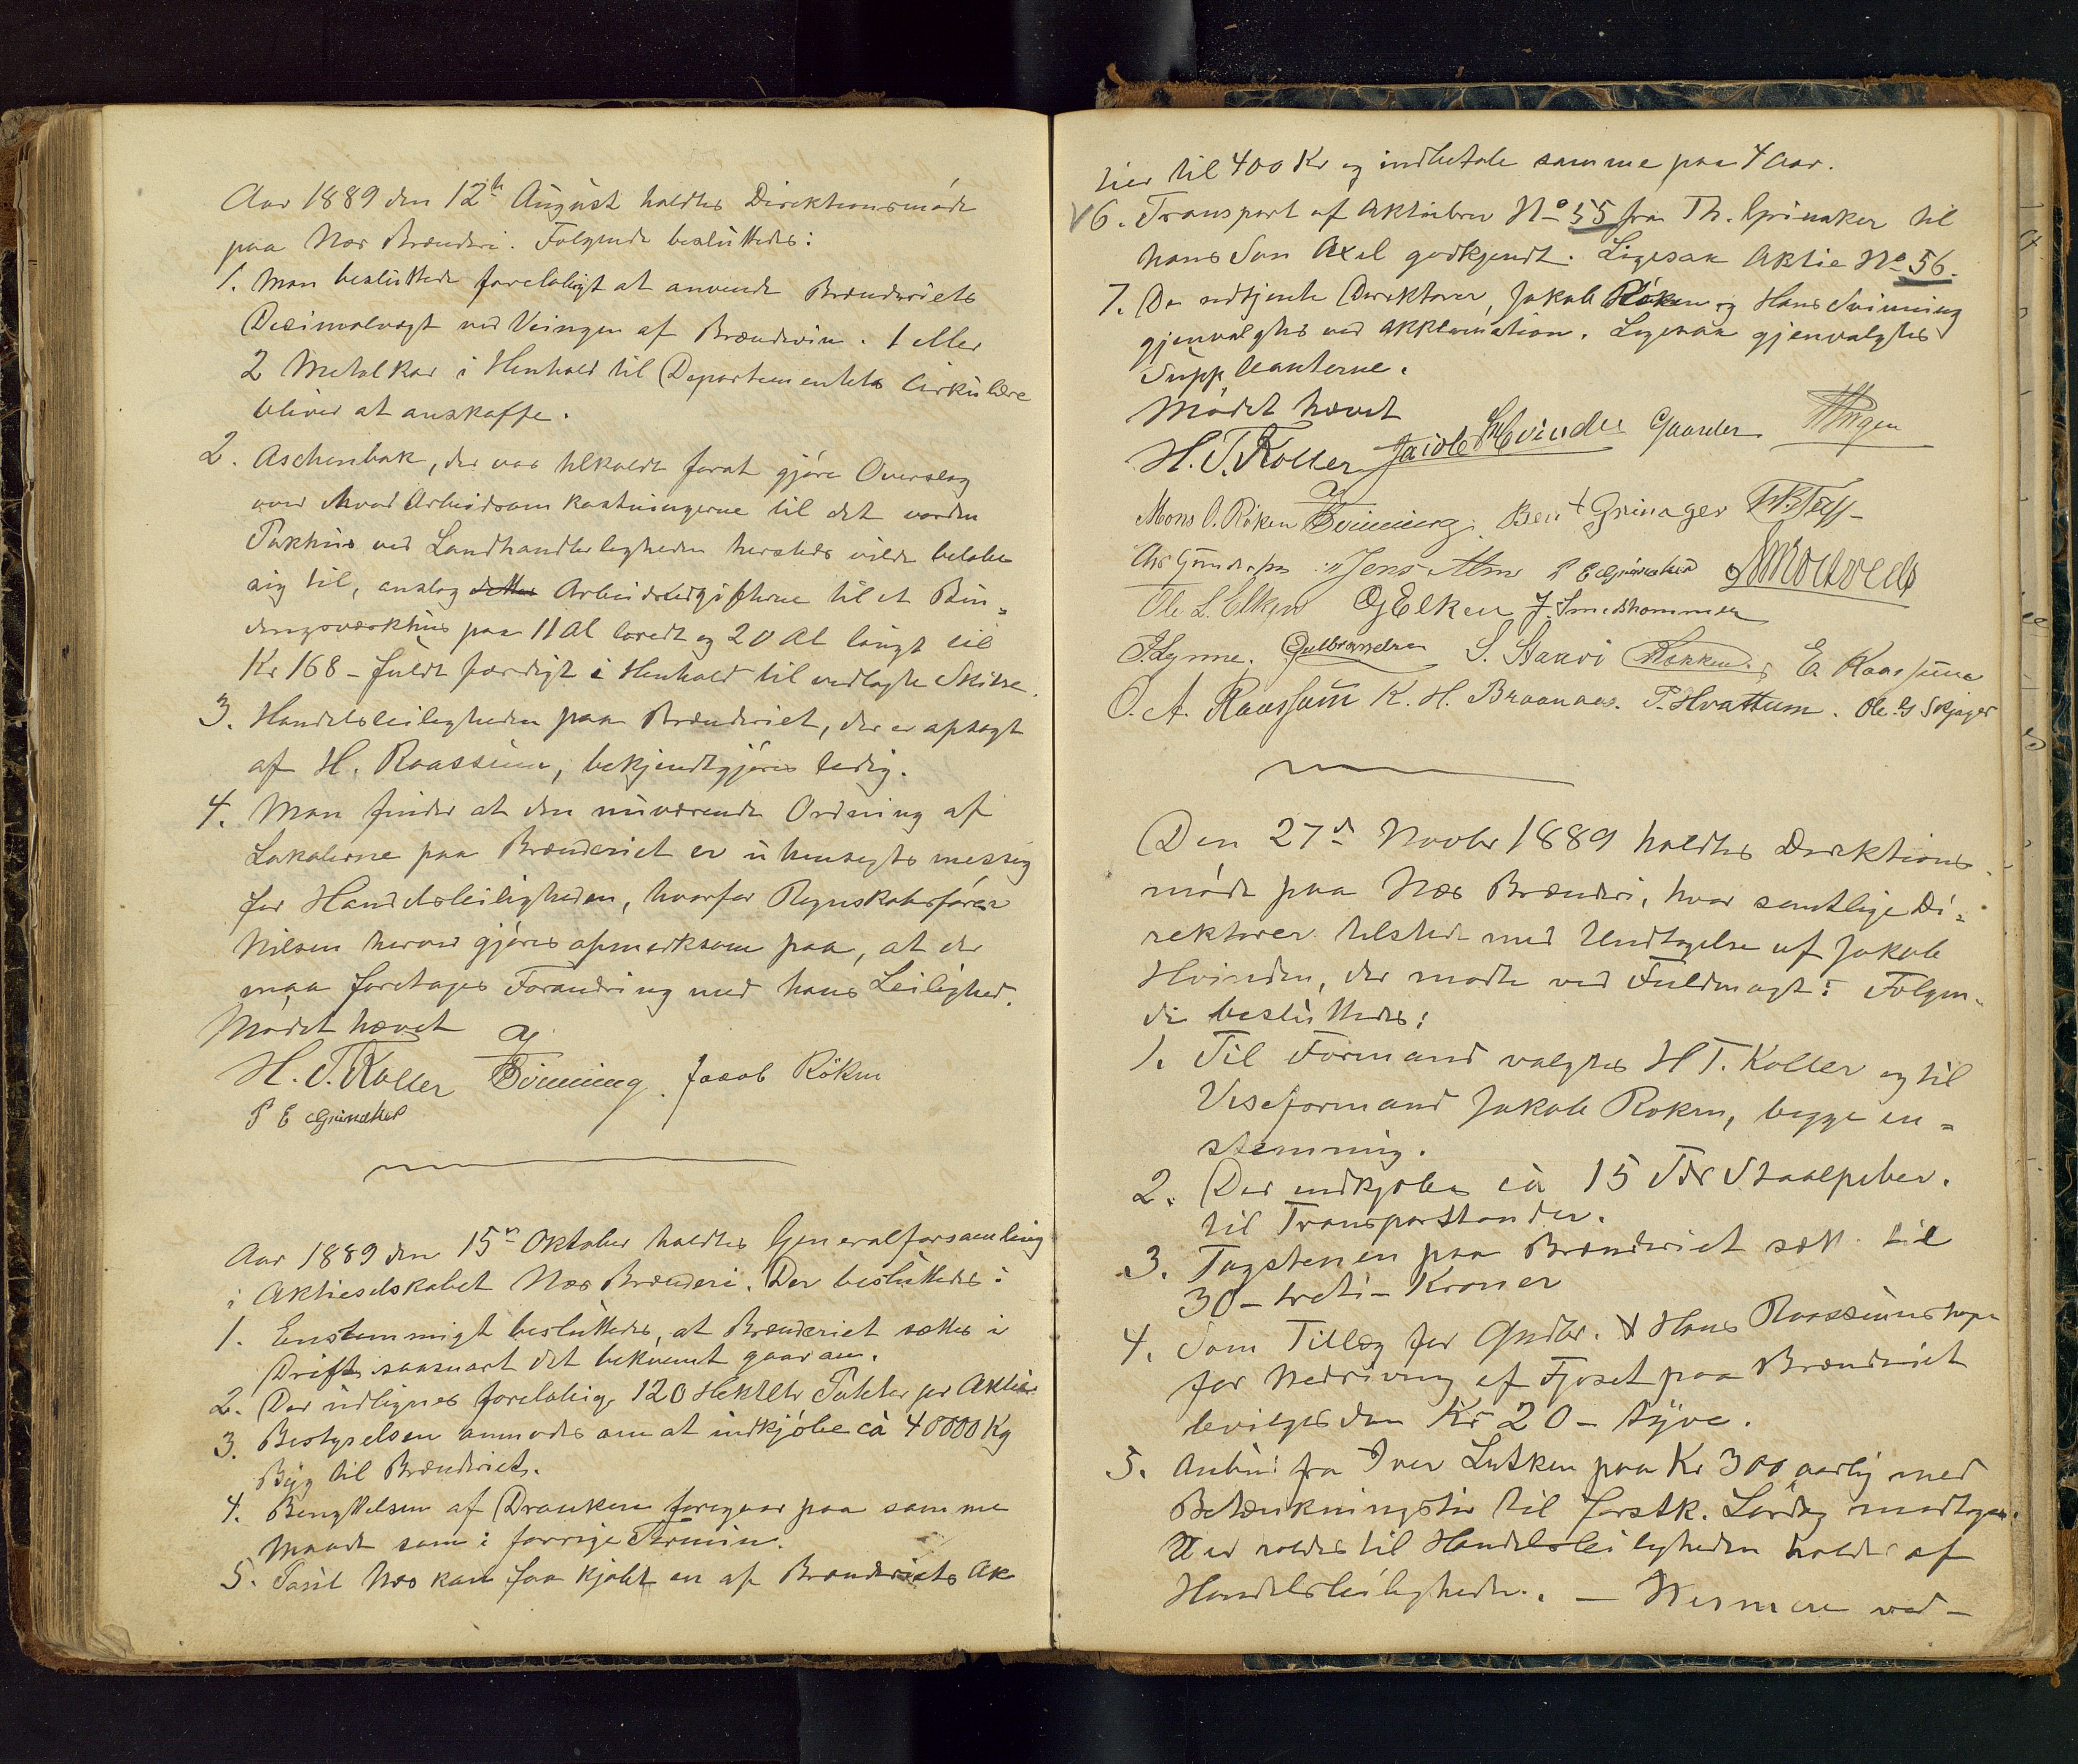 Aar 1889 den 12te August holdtes Direktionsmöde
paa Næs Brænderi. Følgende besluttedes:
1. Man besluttede foreløbigt at anvende Brænderiets
Decimalvægt ved Veingen af Brændevin. 1 eller
2 Metalkar i Henhold til Departementets Cirkulære
bliver at anskaffe.
2. Aschenbak, der var tilkaldt forat gjöre Overslag
over hvad Arbeidsomkostningerne til det vordende
Pakhus ved Landhandlerleiligheden hersteds vilde beløbe
sig til, anslog dette Arbeidsudgifterne til et Bin=
dingsværkhus paa 11 Al bredt og 20 Al langt til
Kr 168 - fuldt færdigt i Henhold til vedlagte Skisse.
3. Handelsleiligheden paa Brænderiet, der er opsagt
af H. Raassum, bekjendtgjöres ledig.
4. Man finder at den nuværende Ordning af
Lokalerne paa Brænderiet er uhensigtsmessig
for Handelsleiligheden, hvorfor Regnskabsförer
Nilsen herved gjöres opmerksom paa, at der
maa foretages Forandring med hans Leilighed.
Mödet hævet
H. T. Koller Svinning. Jacob Röken
P E Grinaker
Aar 1889 den 15de Oktober holdtes Generalforsamling
i Aktieselskabet Næs Brænderi. Der besluttedes:
1. Enstemmigt besluttedes, at Brænderiet sættes i
Drift saasnart det bekvemt gaar an.
2. Der udlignes foreløbig 120 Hektltr Poteter pr Aktie
3. Bestyrelsen anmodes om at indkjöbe ca 40000 Kg
Byg til Brænderiet.
4. Benyttelsen af Dranken foregaar paa samme
Maade som i forrige Termin.
5. Paul Næs kan faa kjøbt en af Brænderiets Ak
tier til 400 Kr og indbetale samme paa 4 Aar.
6. Transport af Aktiebrev No 55 fra Th. Grinaker til
hans Søn Axel godkjendt. Ligesaa Aktie No 56.
7. De udtjente Direktører, Jakob Röken og Hans Svinning
gjenvalgtes ved Akklamation. Ligesaa gjenvalgtes
Suppleanterne.
Mödet hævet
H. T. Koller Jacob Hvinden Gaarder
Mons O. Röken Svinning. Bent Grinager
Jens Alm P E Grinaker
Ole L. Elken Elken J. Smedshammer
Lynne. Gulbrandsen S. Staxri E. Raassum
O. A. Raassum K. H. Braanaas. P. Hvattum. Ole G Skjager
Den 27de Novbr 1889 holdtes Direktions
möde paa Næs Brænderi, hvor samtlige Di=
rektører tilstede med Undtagelse af Jakob
Hvinden, der mødte ved Fuldmagt: Følgen=
de besluttedes:
1. Til Formand valgtes H T. Koller og til
Viseformand Jakob Røken, begge en=
stemmig.
2. Der indkjøbes ca 15 Staalpiber.
til Transporttønder.
3. Tagstenen paa Brænderiet til
30 - treti - Kroner
4. Som Tillæg for Gudbr. & Hans Raassum
for Nedrivning af Fjøset paa Brænderiet
bevilges dem Kr 20 - tyve.
5. Anbud fra Iver Lutken paa Kr 300 aarlig med
Betænkningstid til førstk. Lørdag modtoges.
Ved til Handelsleiligheden holdes af
Handelsleiligheden. - Nermere ved -